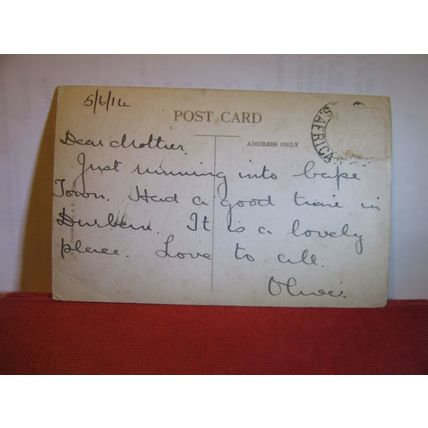 5/6/14
POST CARD
S.AFRICA
ADDRESS ONLY
Dear Mother.
Just running into Cape
Town. Had a good time in
Durban. It is a lovely
place. Love to all.
Oliver.